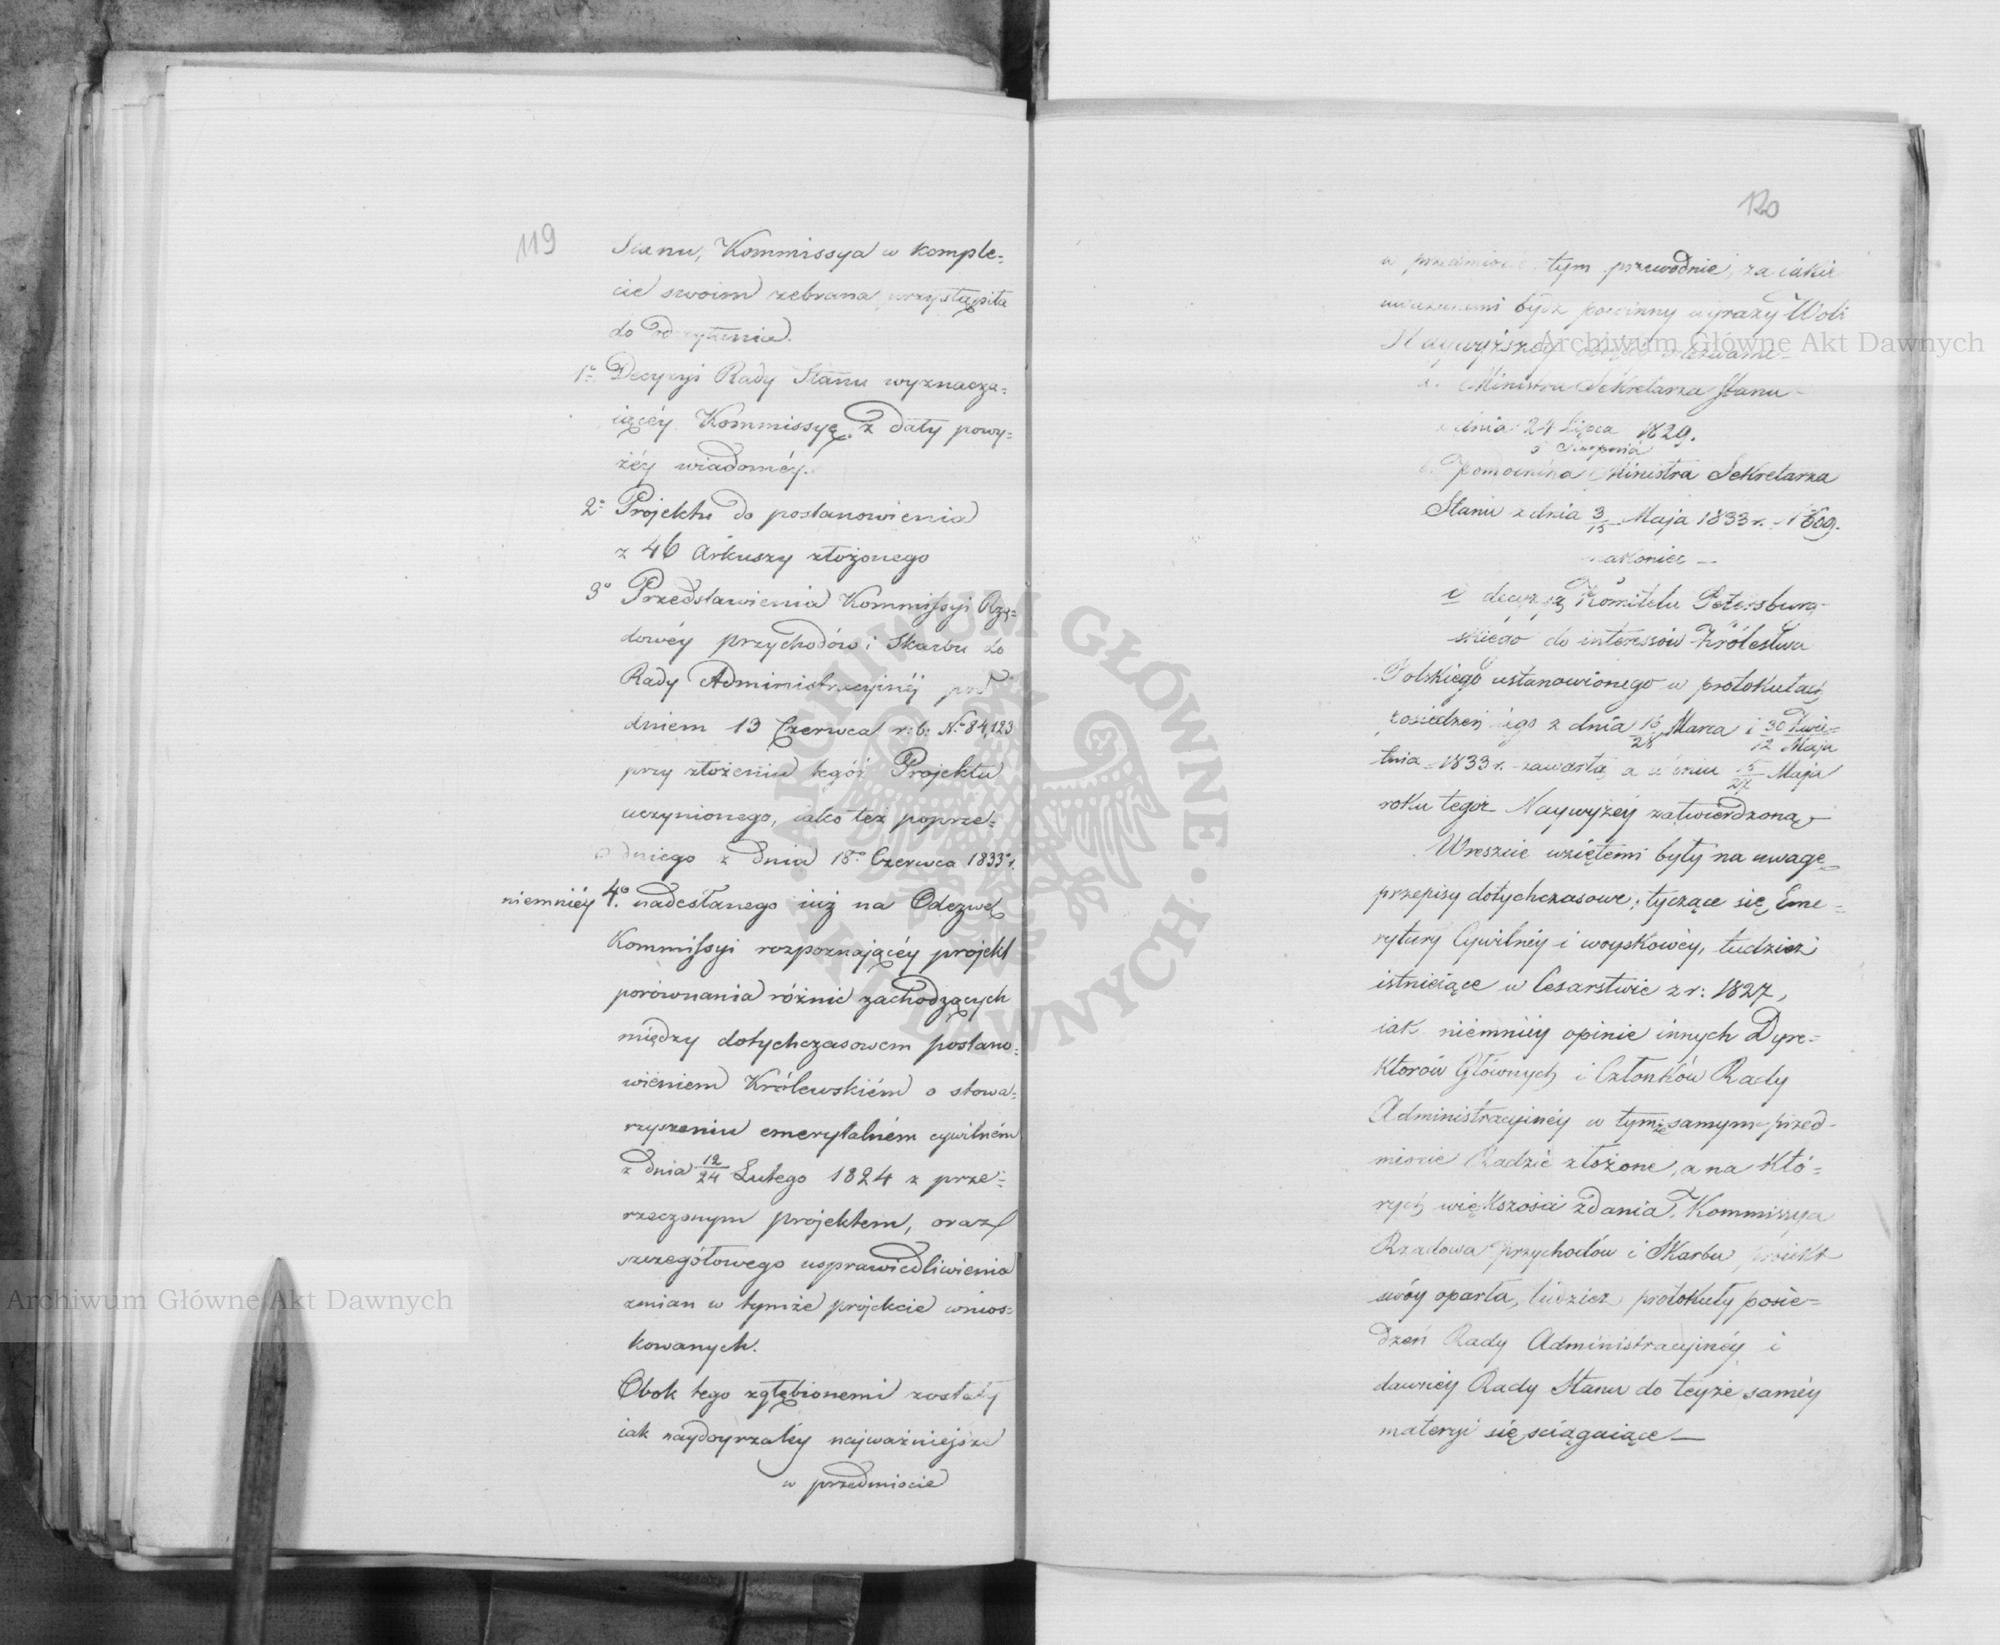 119
Stanu, Kommissya w komple=
cie swoim zebrana przystąpiła
do odczytania.
1º Decyzyi Rady Stanu wyznacza=
iącéy Kommissyę z daty powy=
żéy wiadoméy.
2º Projektu do postanowienia
z 46 Arkuszy złożonego
3º Przedstawienia Kommissyi Rzą=
dowéy przychodów i Skarbu do
Rady Administracyjnéj pod
dniem 13 Czerwca r: b: Nº 84,123
przy złożeniu tegóż Projektu
uczynionego, iako też poprze=
dniego z dnia 15º Czerwca 1833 r.
niemniéy 4º nadesłanego iuż na Odezwę
Kommissyi rozpoznającéy projekt
porównania różnic zachodzących
między dotychczasowem postano=
wieniem Królewskiém o stowa=
rzyszeniu emerytalném cywilném
z dnia 12/24 Lutego 1824 z prze=
rzeczonym projektem, oraz
szczegółowego usprawiedliwienia
zmian w tymże projekcie wnios=
kowanych.
Obok tego zgłębionemi zostały
iak naydoyrzaléy najważniejsze
w przedmiocie
120
w przedmiocie tym przewodnie, za iakie
uważanemi bydź powinny wyrazy Woli
Naywyższéy
a. Ministra Sekretarza Stanu
z dnia 24 Lipca / 5 Sierpnia 1829.
b. Pomocnika Ministra Sekretarza
Stanu z dnia 3/15 Maja 1833 r. Nº 609.
nakoniec —
c decyzją Komitetu Petersburg=
skiego do interessów Królestwa
Polskiego ustanowionego w protokułach
posiedzeń iego z dnia 16/28 Marca i 30 Kwie=/12 Maja
tnia 1833 r. zawartą a w dniu 15/27 Maja
roku tegoż Naywyżéy zatwierdzoną
Wreszcie wziętemi były na uwagę
przepisy dotychczasowe, tyczące się Eme=
rytury Cywilnéy i woyskowéy, tudzież
istnieiące w Cesarstwie z r: 1827,
iak niemniéy opinie innych Dyre=
ktorów Głównych i Członków Rady
Administracyjnéy w tymże samym przed=
miocie Radzie złożone, a na któ=
rych większości zdania Kommissya
Rządowa przychodów i Skarbu proiekt
swóy oparła, tudzież protokuły posie=
dzeń Rady Administracyjnéy i
dawnéy Rady Stanu do teyże saméy
materyi się ściągaiące —
Archiwum Główne Akt Dawnych
Archiwum Główne Akt Dawnych
ARCHIWUM GŁÓWNE AKT DAWNYCH